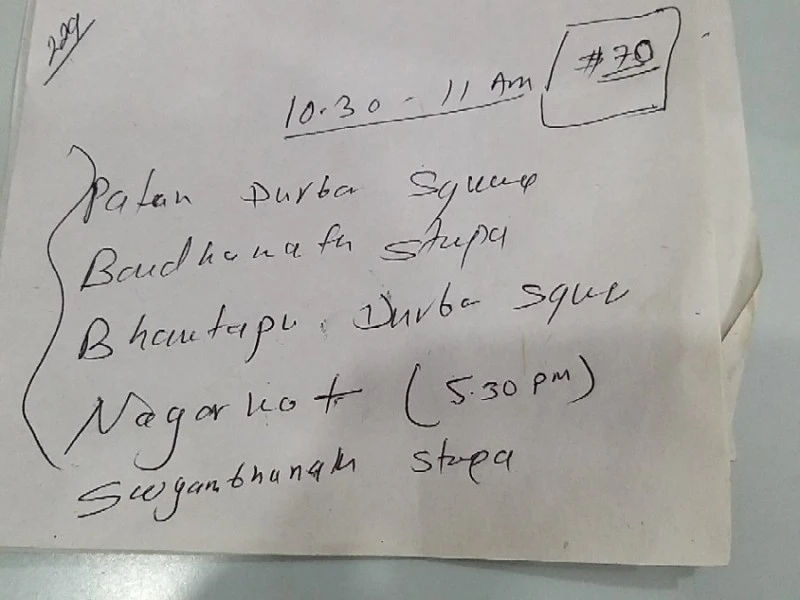 229
10.30 - 11 Am
#70
Patan Durba Square
Baudhanath Stupa
Bhaktapu. Durba Squre
Nagarkot (5.30 pm)
Swyambhunath Stupa